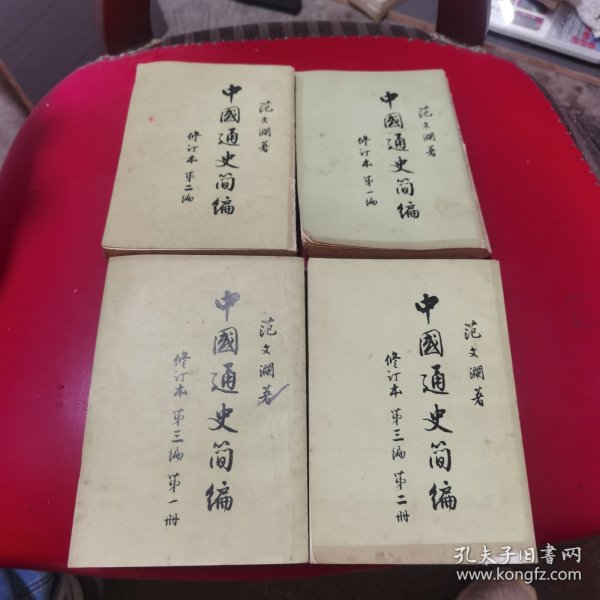 范文瀾著
中國通史简编
修订本 第二编
范文瀾著
中國通史简编
修订本 第一编
范文瀾著
中國通史简编
修订本 第三编 第一册
范文瀾著
中國通史简编
修订本 第三编 第二册
孔夫子旧书网
www.kongfz.com